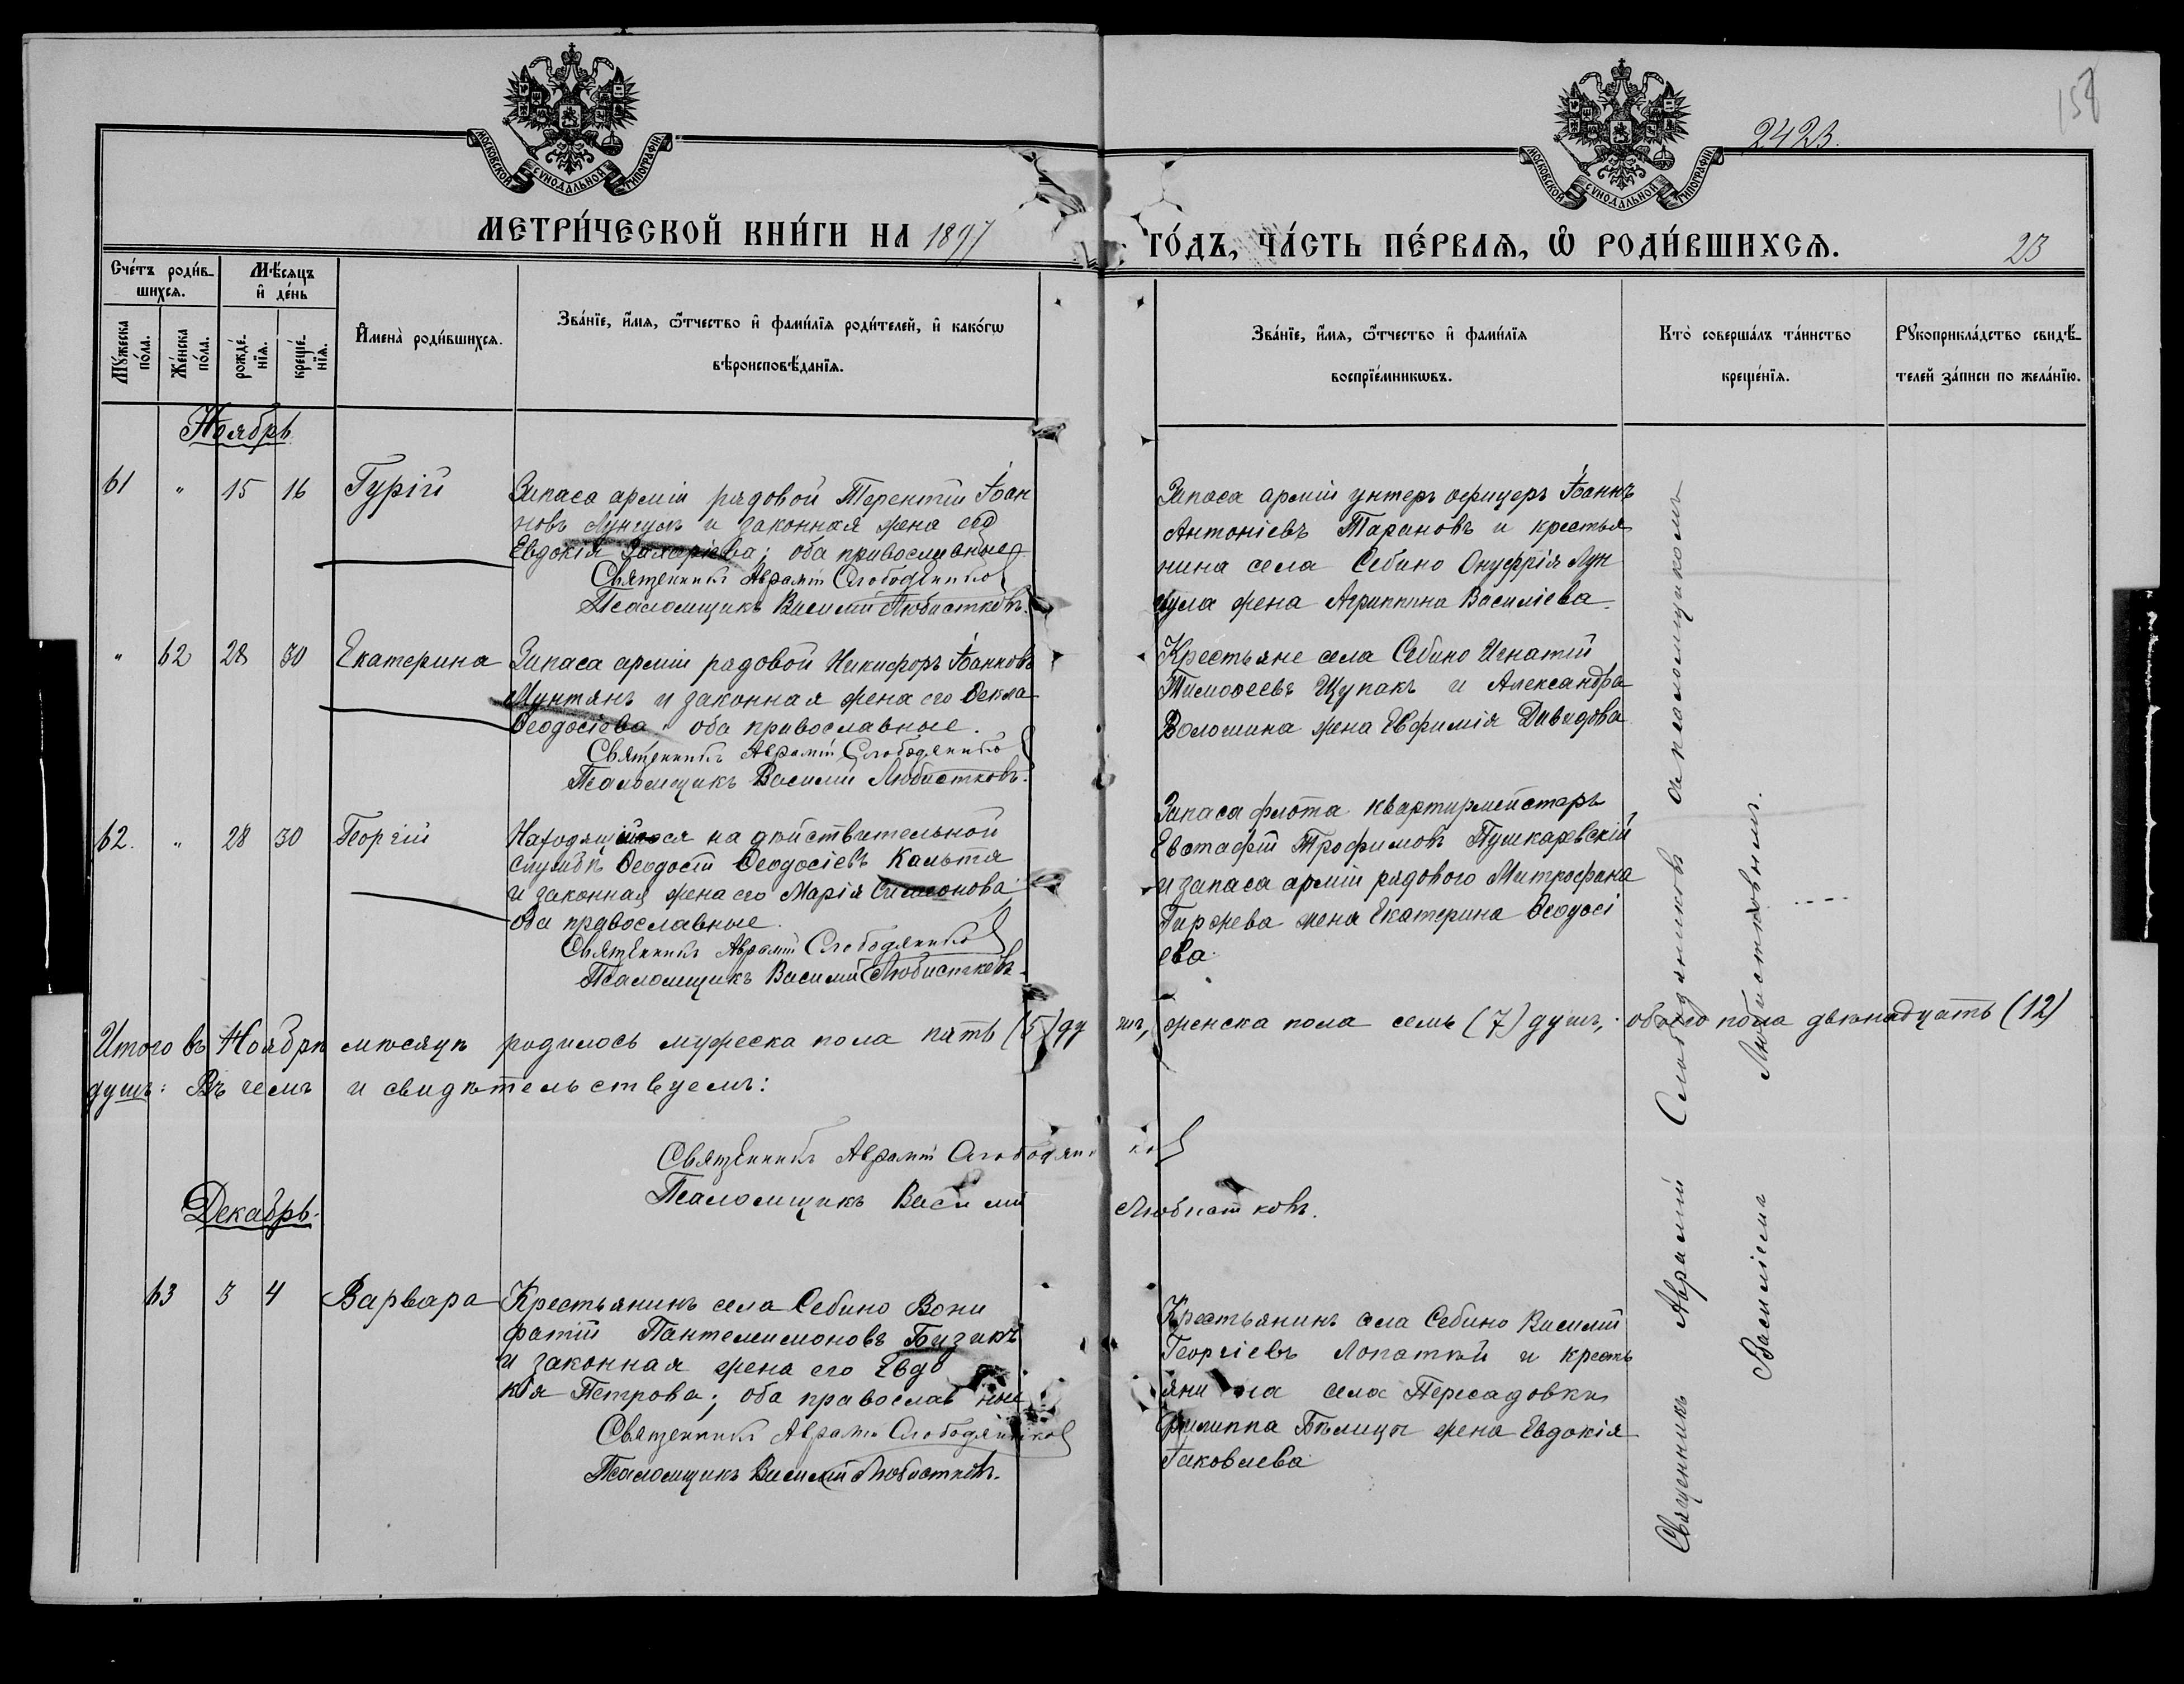 МОСКОВСКОЙ СУНОДАЛЬНОЙ ТИПОГРАФІИ.
МОСКОВСКОЙ СУНОДАЛЬНОЙ ТИПОГРАФІИ.
2423.
158
МЕТРИ́ЧЕСКОЙ КНИ́ГИ НА 1897
ГО́ДЪ, ЧА́СТЬ ПЕ́РВАѦ, Ѡ҆ РОДИ́ВШИХСѦ.
23
Сче́тъ роди́в-
шихсѧ.
Мѣ́сѧцъ
и҆ де́нь
Мꙋ́жеска
по́ла.
Же́нска
по́ла.
рожде́-
нїѧ.
креще́-
нїѧ.
И҆мена̀ роди́вшихсѧ.
Зва́нїе, и҆́мѧ, ѻ҆́тчество и҆ фами́лїѧ роди́телей, и҆ како́гѡ
вѣроисповѣ́данїѧ.
Зва́нїе, и҆́мѧ, ѻ҆́тчество и҆ фами́лїѧ
воспрїе́мникѡвъ.
Кто̀ соверша́лъ та́инство
креще́нїѧ.
Рꙋкоприкла́дство свидѣ́-
телей за́писи по жела́нїю.
Ноябрь
61 " 15 16 Гурій
Запаса арміи рядовой Терентій Іоан
новъ Лунгулъ и законная жена его
Евдокія Захаріева; оба православные
Священникъ Аврамій Слободянниковъ
Псаломщикъ Василій Любистковъ.
Запаса арміи унтеръ офицеръ Іоаннъ
Антоніевъ Тарановъ и крестья
нина села Себино Онуфрія Лун
гула жена Агриппина Василіева.
" 62 28 30 Екатерина
Запаса арміи рядовой Никифоръ Іоанновъ
Мунтянъ и законная жена его Ѳекла
Ѳеодосіева оба православные.
Священникъ Аврамій Слободянниковъ
Псаломщикъ Василій Любистковъ.
Крестьяне села Себино Игнатій
Тимоѳеевъ Щупакъ и Александра
Волошина жена Евфимія Давидова
62. " 28 30 Георгій
Находящійся на дѣйствительной
службѣ Ѳеодосій Ѳеодосіевъ Кальтя
и законная жена его Марія Симеонова
оба православные.
Священникъ Аврамій Слободянниковъ
Псаломщикъ Василій Любистковъ.
Запаса флота квартирмейстеръ
Евстафій Трофимовъ Пушкаревскій
и запаса арміи рядового Митрофана
Гиржева жена Екатерина Ѳеодосі
ева.
Итого въ Ноябрѣ мѣсяцѣ родилось мужеска пола пять (5) ду шъ, женска пола семь (7) душъ, обоего пола двѣнадцать (12)
душъ: Въ чемъ и свидѣтельствуемъ:
Священникъ Аврамій Слободянниковъ
Псаломщикъ Василій Любистковъ.
Декабрь.
63 3 4 Варвара
Крестьянинъ села Себино Вони
фатій Пантелимоновъ Бузакъ
и законная жена его Евдо
кія Петрова; оба православные
Священникъ Аврамій Слободянниковъ
Псаломщикъ Василій Любистковъ.
Крестьянинъ села Себино Василій
Георгіевъ Лопаткій и кресть
янина села Пересадовки
Филиппа Бѣлицы жена Евдокія
Іаковлева
Священникъ Аврамій Слободянниковъ съ псаломщикомъ
Василіемъ Любистковымъ.